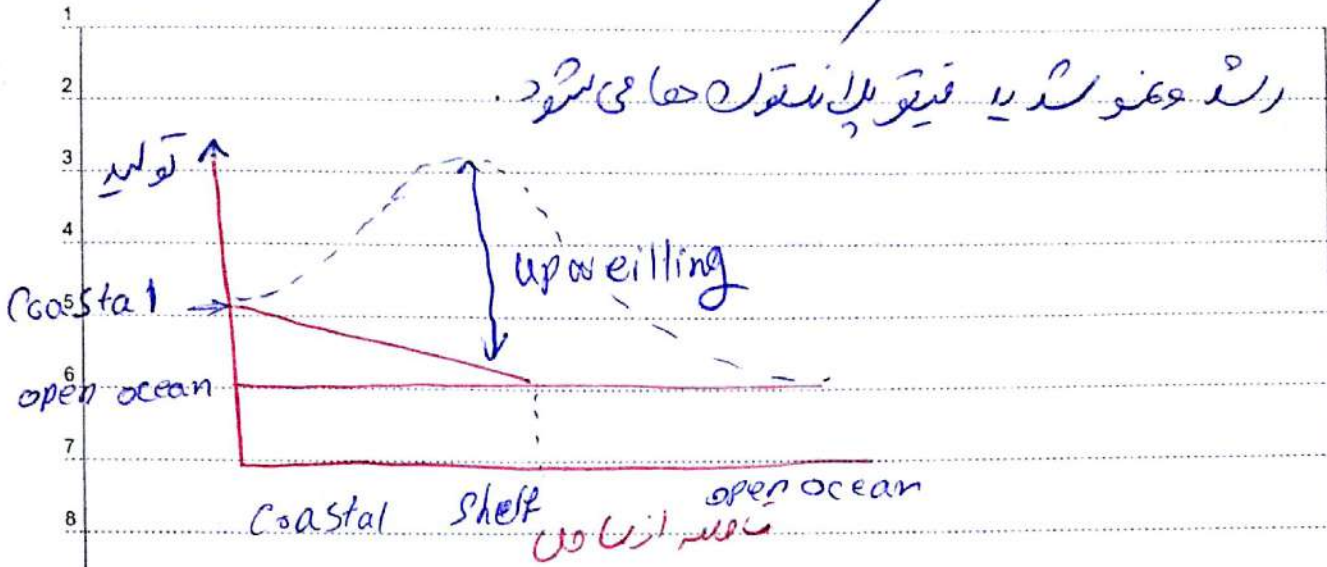 1
2
رشد و نمو شدید فیتوپلانکتون ها می شود.
3
تولید
4
upweilling
Coastal
5
6
open ocean
7
Coastal Shelf open ocean
8
فاصله از ساحل